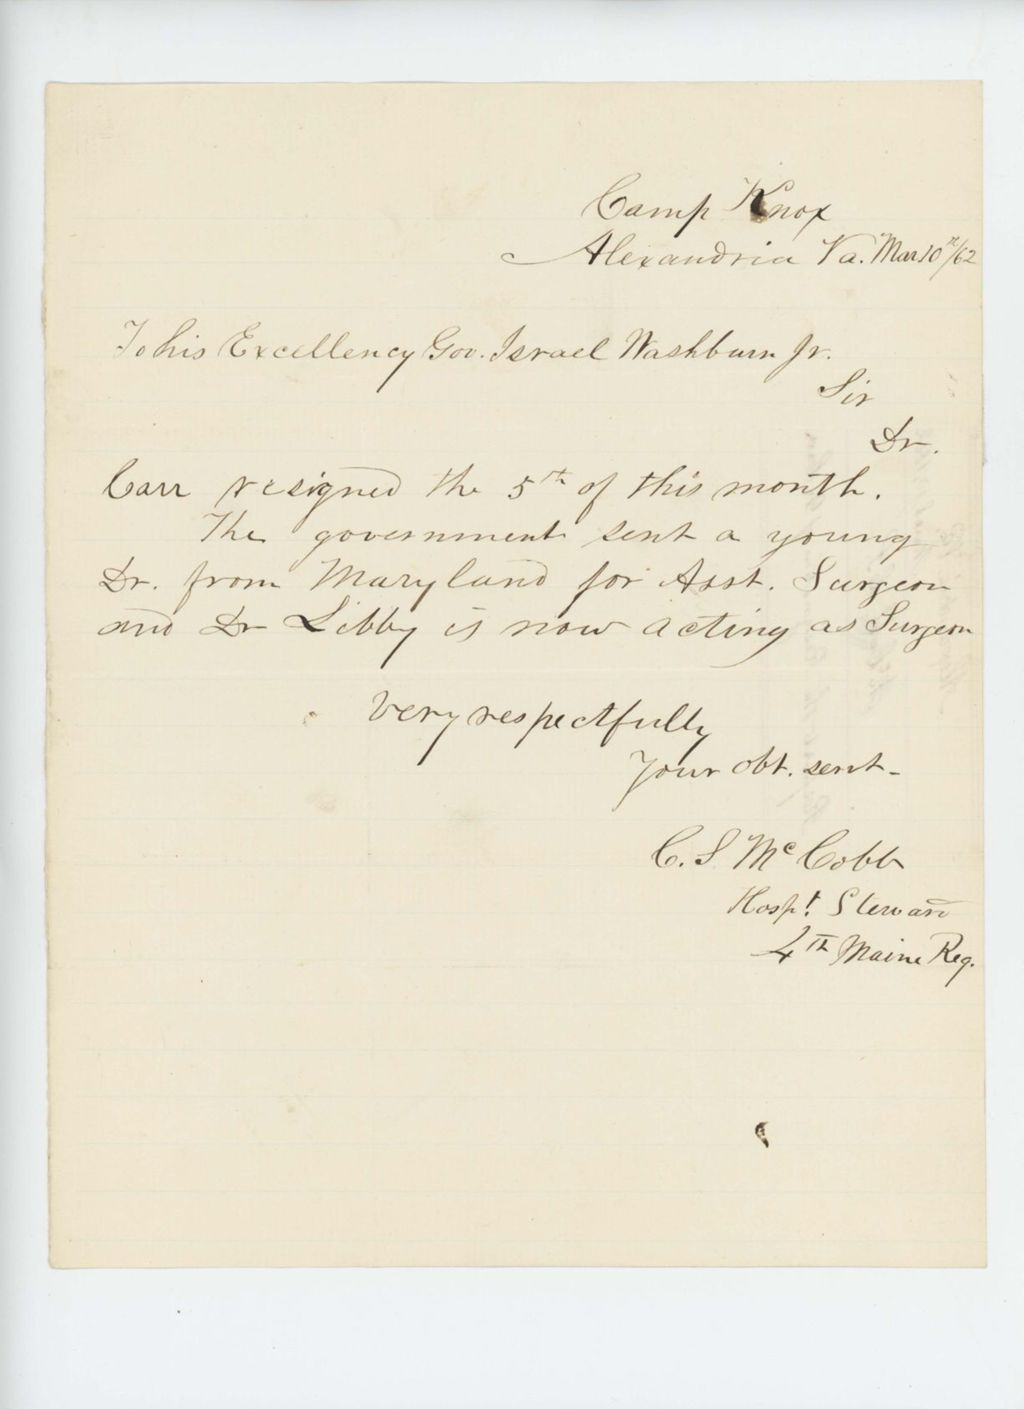 Camp Knox
Alexandria Va. Mar 10th/62
To his Excellency Gov. Israel Washburn Jr.
Sir
Dr.
Carr resigned the 5th of this month.
The government sent a young
Dr. from Maryland for Asst. Surgeon
and Dr Libby is now acting as Surgeon
Very respectfully
Your obt. servt-
C. S. McCobb
Hospt. Steward
4th Maine Reg.